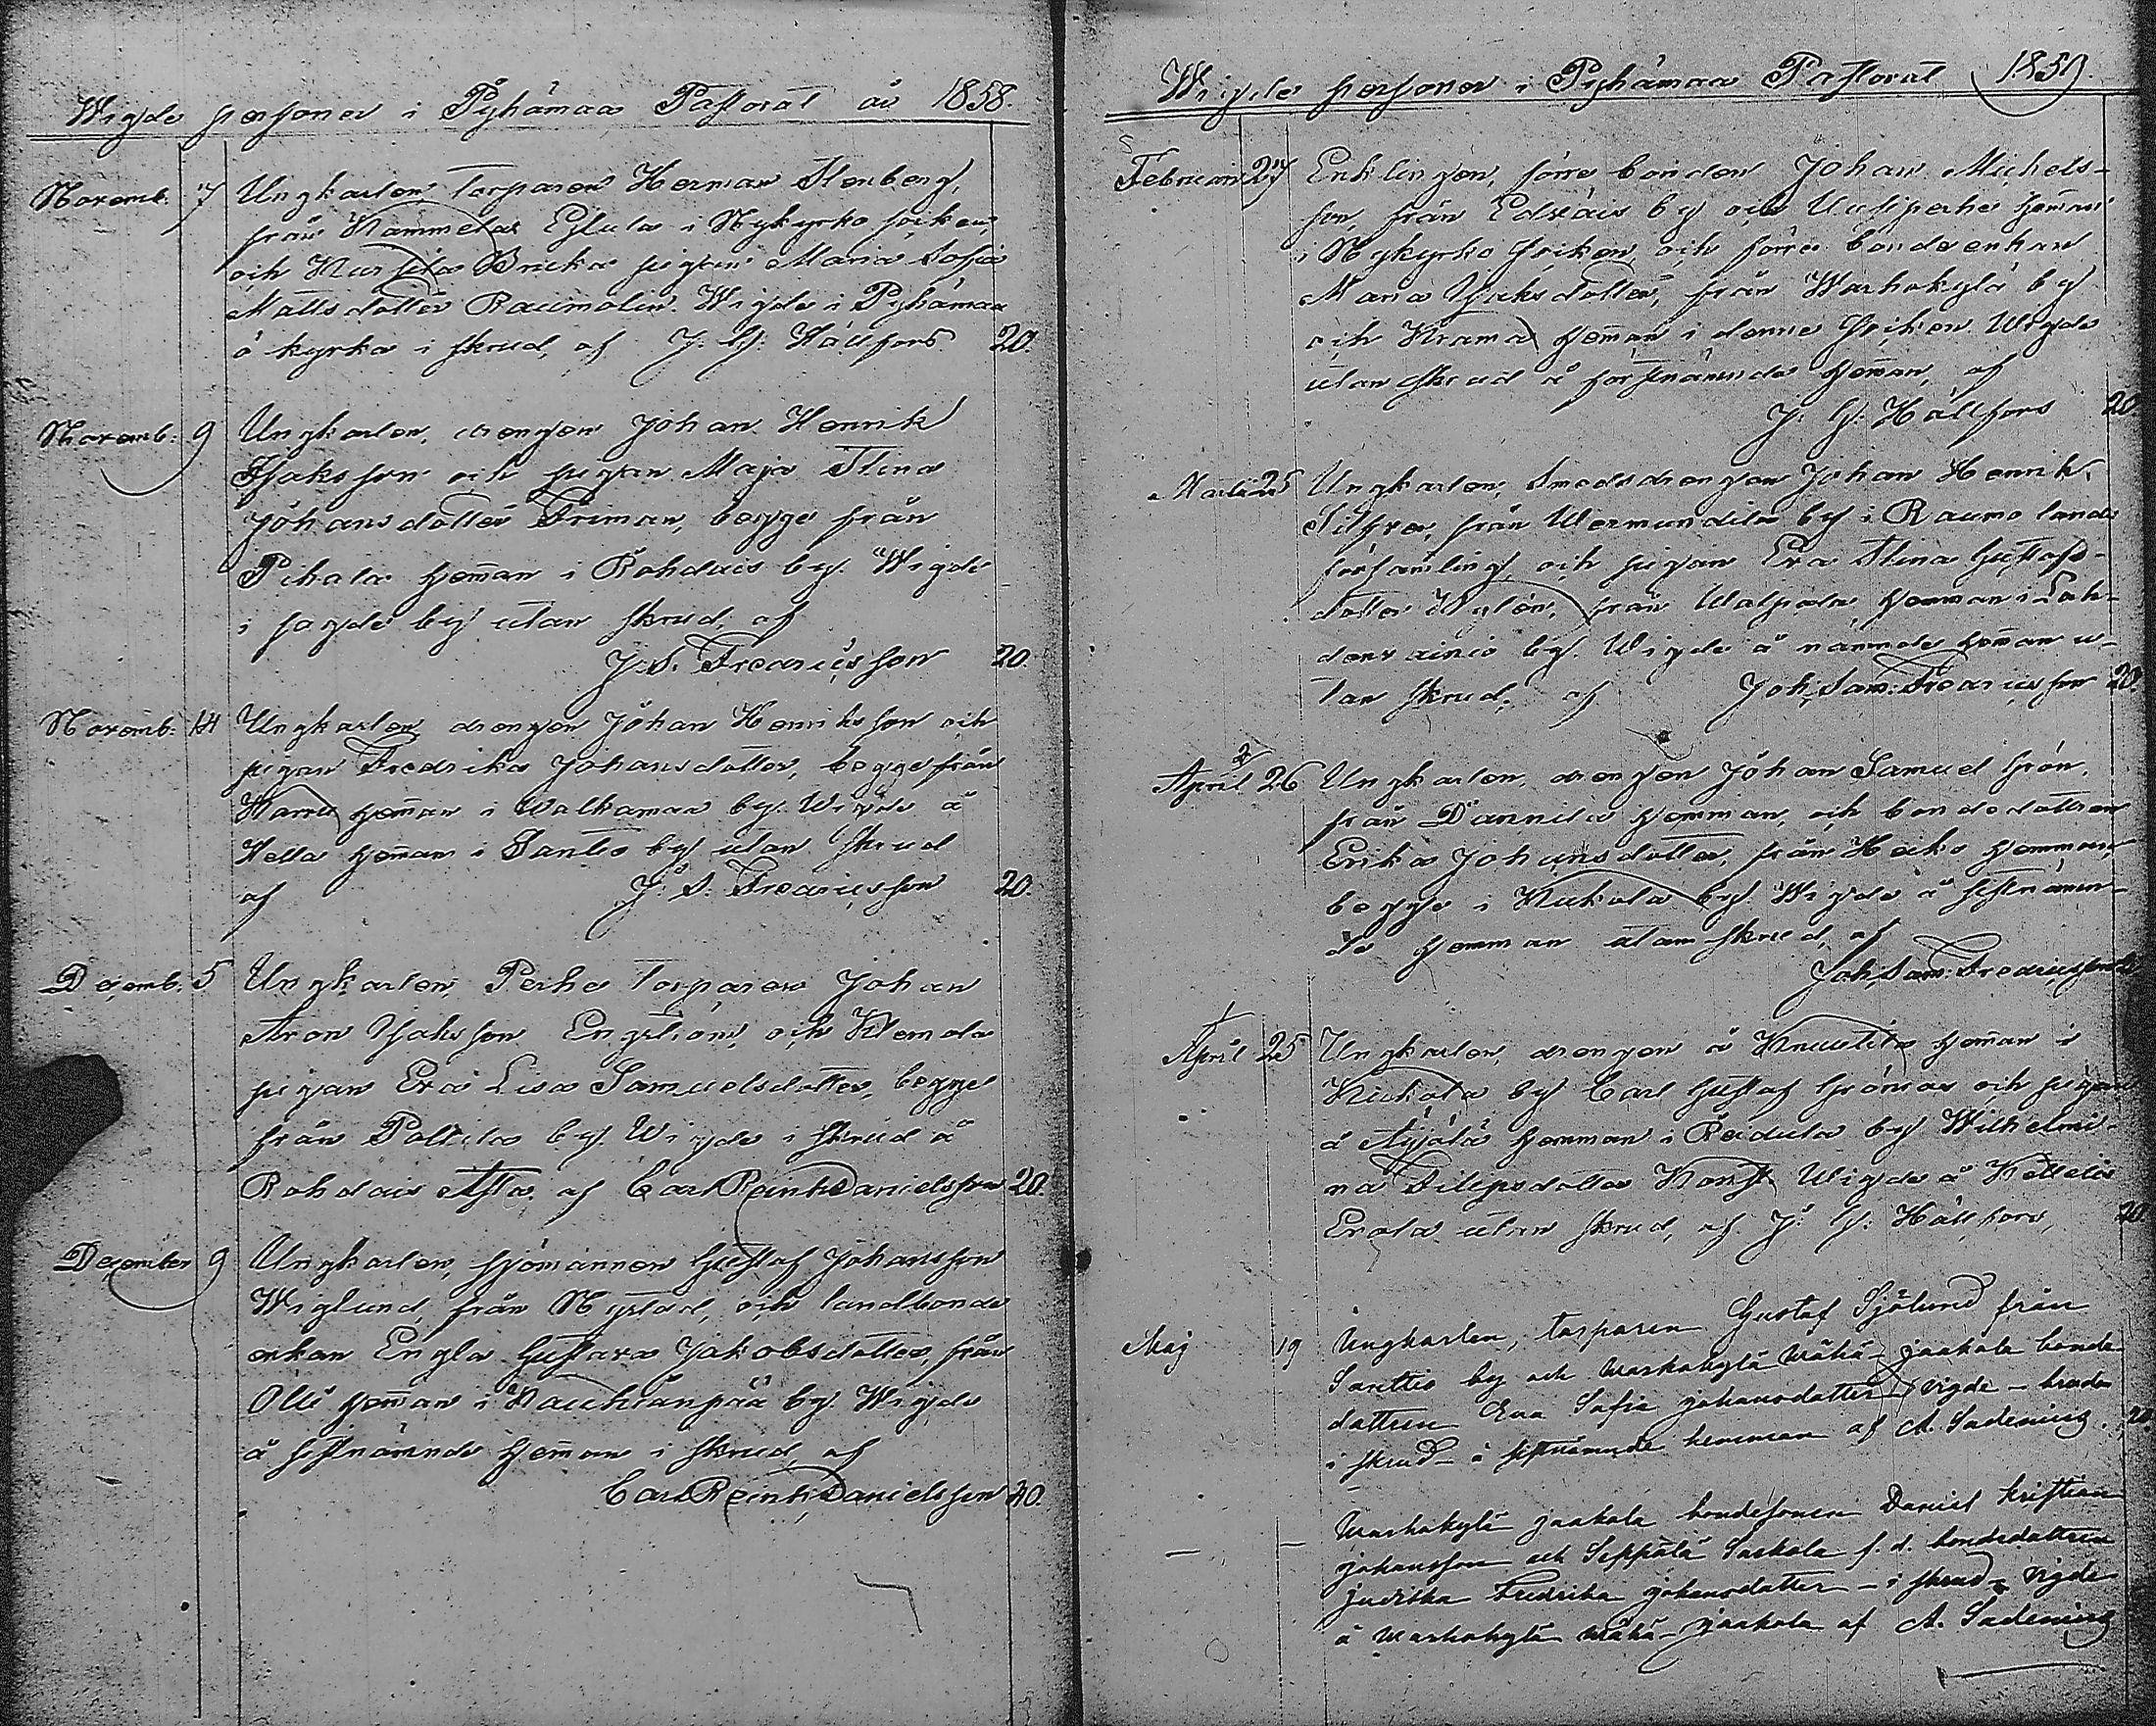 Wigde personer i Pyhämaa Pastorat år 1858.
Novemb. 7 Ungkarlen, Torparen Herman Stenberg,
från Kammela i Nykyrko socken,
och pigan Maria Sofia
Mattsdotter Raumolin. Wigde i Pyhämaa
ö kyrka i skrud, af J. G. Hällfors 20.
Novemb: 9 Ungkarlen, drengen Johan Henrik
Isaksson och pigan Maja Stina
Johansdotter Friman, begge från
Pihala hem̄an i Rohdais by. Wigde
i sagde by utan skrud, af
J. S. Fredricsson 20.
Novemb: 14 Ungkarlen drengen Johan Henriksson och
pigan Fredrika Johansdotter, begge från
Karru hem̄an i Walkamaa by. Wigde å
Hella hem̄an i Santio by utan skrud
af J. S. Fredricsson 20.
Decemb. 5 Ungkarlen, Perhe Torparen Johan
Aron Isaksson Engström, och Klemola
pigan Eva Lisa Samuelsdotter, begge
från Paltila by. Wigde i skrud å
Rohdais af Carl Reinh Danielsson 20.
December 9 Ungkarlen, sjömannen Gustaf Johansson
Wiglund, från Nystad, och landbonde
enkan Engla Gustava Jakobsdotter, från
Olli hem̄an i Kauhianpää by. Wigde
å sistnämnde hem̄an i skrud, af
Carl Reinh Danielsson 40.
Wigde personer i Pyhämaa Pastorat 1859.
Februari 27 Enklingen, förre bonden Johan Michels-
son, från Edväis by och Uusiperhe hem̄an
i Nykyrko socken, och förre bondeenkan
Maria Isaksdotter, från Warhokylä by
och Krama hem̄an i denne socken. Wigde
utan skrud å förstnämnde hem̄an, af
J. G. Hällfors 20
Marti 25 Ungkarlen, Smedsdrengen Johan Henrik
Silfver, från Wermundila by i Raumo lands
församling, och pigan Eva Stina Gustafs-
dotter Nylén, från Walpola hemman i Lah-
denvainio by. Wigde å nämnde hem̄an u-
tan skrud, af Joh. Sam: Fredricsson 20
April 26 Ungkarlen, drengen Johan Samuel Grön,
från Dannila hemman, och bondedottren
Erika Johansdotter, från Heiko hemman,
begge i Kukola by. Wigde å sistnämn-
de hemman utan skrud, af
Joh. Sam: Fredricsson 20
April 25 Ungkarlen, drengen å Knuutila hem̄an i
Kukola by Carl Gustaf Grönroos och pigan
å Äijälä hemman i Reidula by Wilhelmi-
na Filipsdotter Wigde å Kettelis
Erola utan skrud, af J. G. Hällfors, 20
Maj 19 Ungkarlen, torparen Gustaf Sjölund från
Santtio by och Warhokylä Wähä-jaakola bonde
dottren Eva Sofia johansdotter, vigde
i skrud å sistnämnde hemman af A. Sadenius. 20
— — Warhokylä jaakola bondesonen Daniel Kristian
johansson och Seppälä f. d. bondedottren
juditha Fredrika johansdotter – i skrud – vigde
å Warhokylä Wähä-jaakola af A. Sadenius